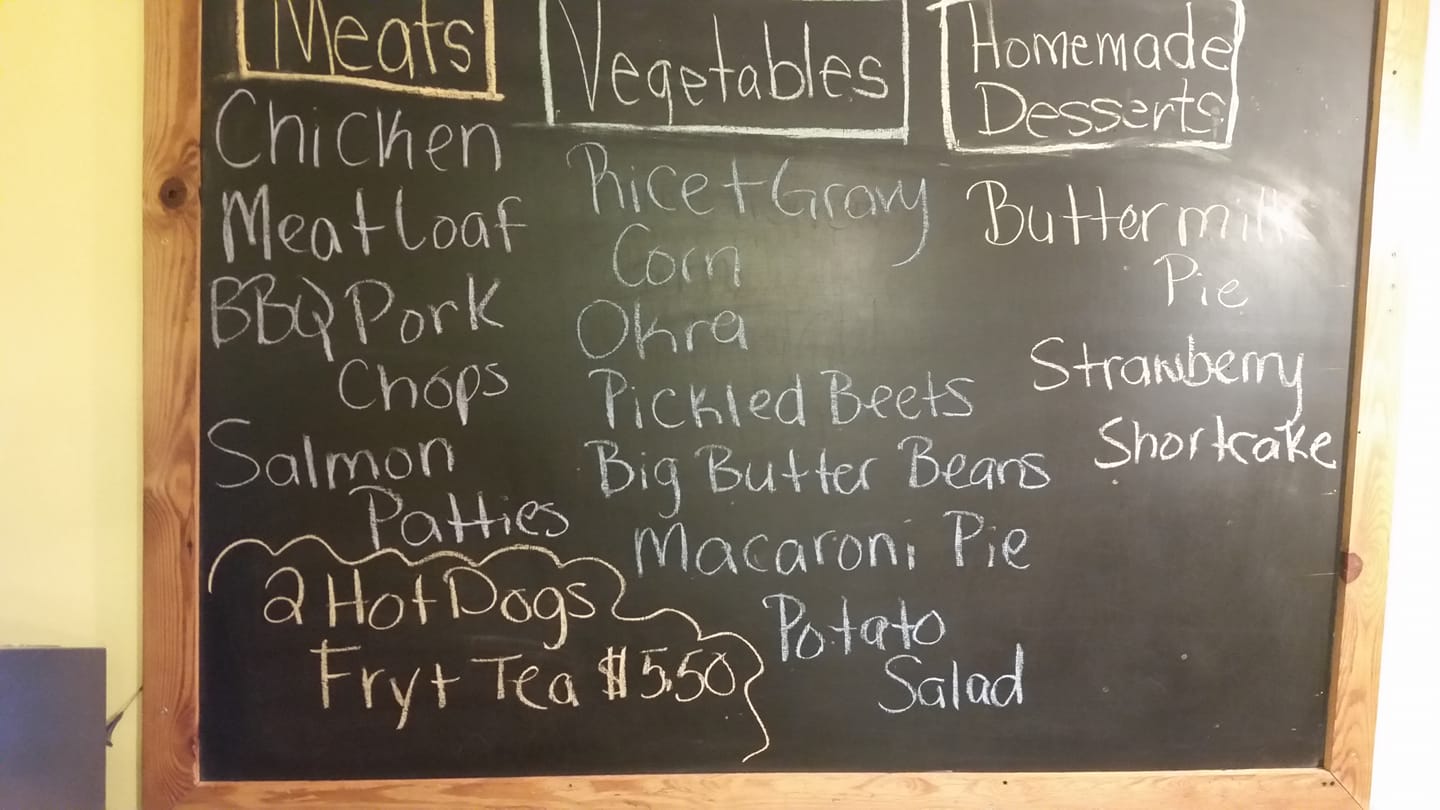 Meats
Chicken
Meatloaf
BBQ Pork
Chops
Salmon
Patties
2 Hot Dogs
Fry + Tea $5.50
Vegetables
Rice + Gravy
Corn
Okra
Pickled Beets
Big Butter Beans
Macaroni Pie
Potato
Salad
Homemade
Desserts
Buttermilk
Pie
Strawberry
Shortcake